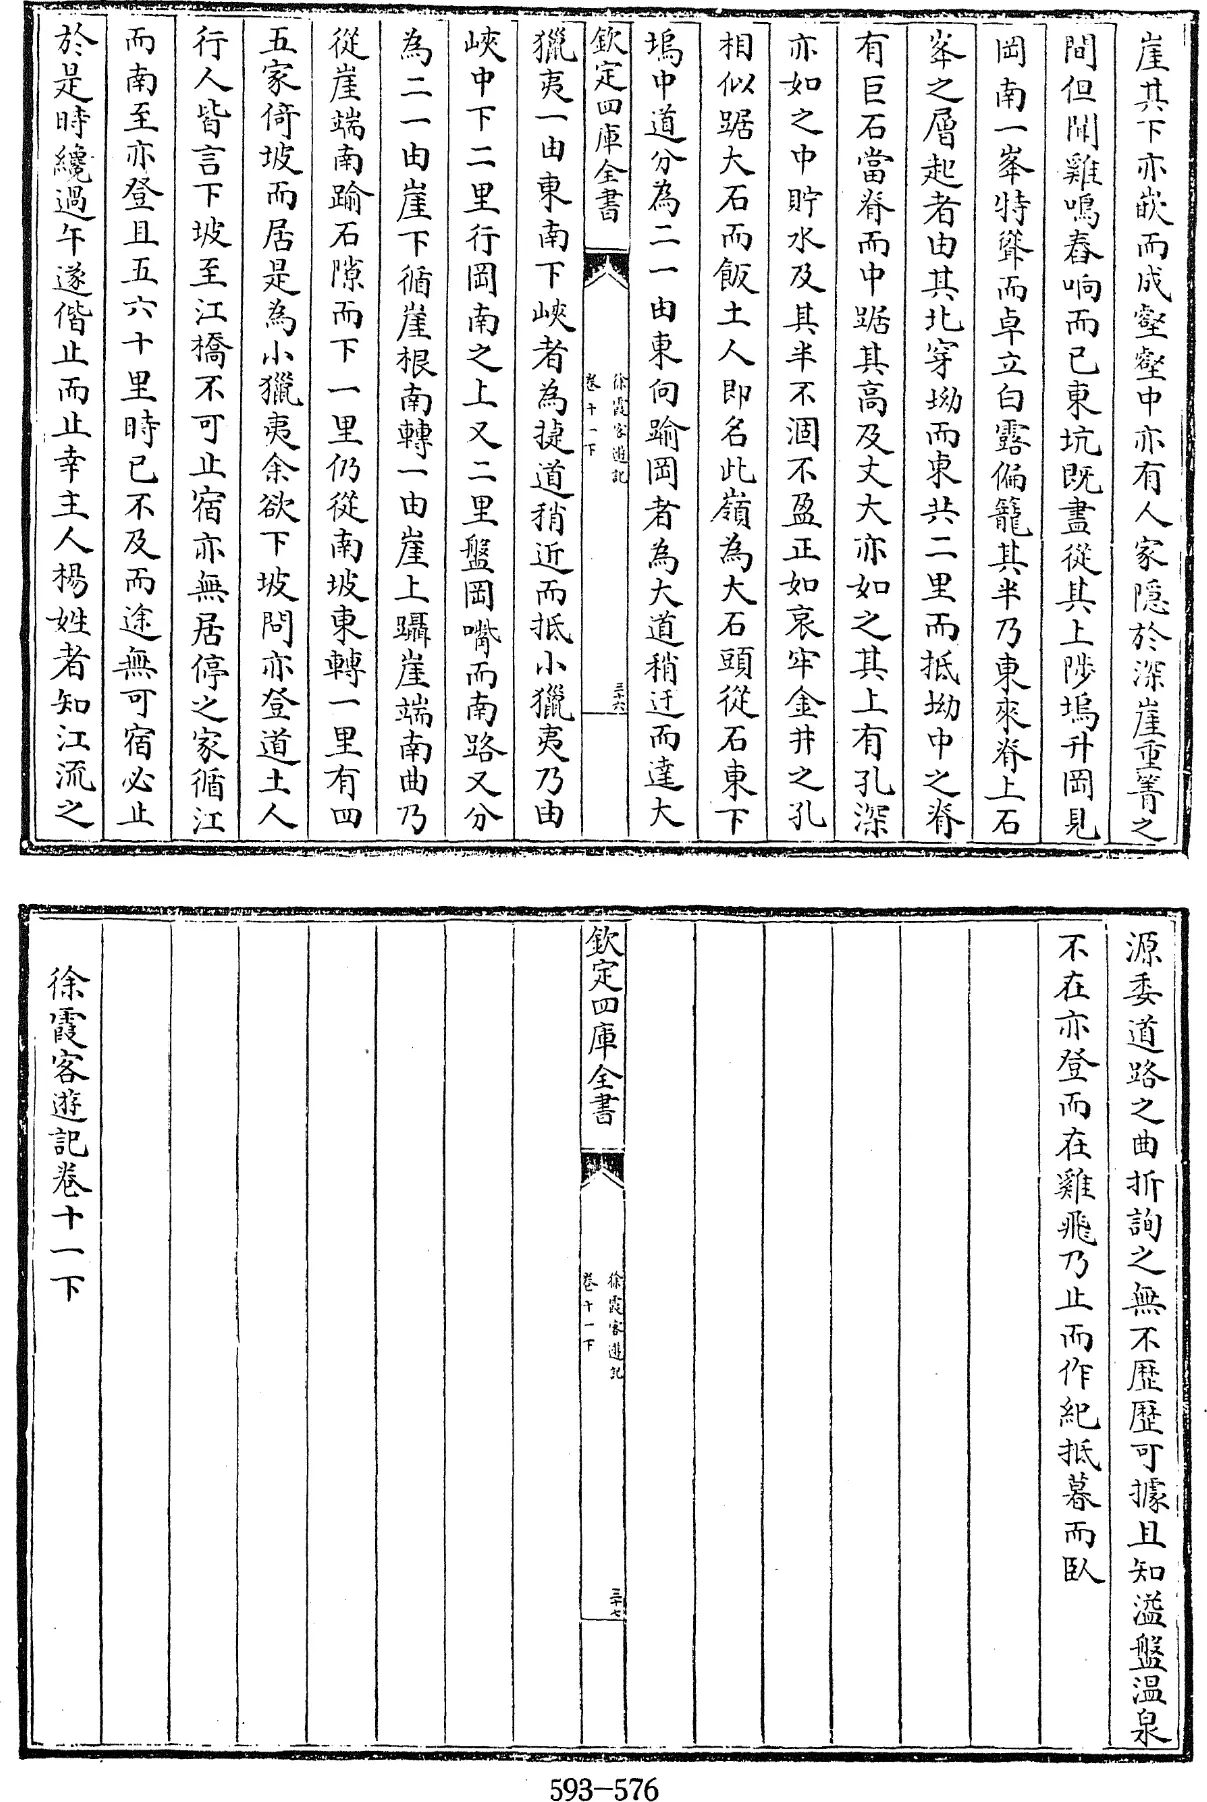 崖其下亦嵌而成壑壑中亦有人家隱於深崖重箐之
間但聞雞鳴舂响而已東坑既盡從其上陟塢升岡見
岡南一峯特聳而卓立白露偏籠其半乃東來脊上石
峯之層起者由其北穿坳而東共二里而抵坳中之脊
有巨石當脊而中踞其高及丈大亦如之其上有孔深
亦如之中貯水及其半不涸不盈正如哀牢金井之孔
相似踞大石而飯土人即名此嶺為大石頭從石東下
塢中道分為二一由東向踰岡者為大道稍迂而達大
欽定四庫全書
徐霞客遊記
卷十一下
三十六
獵夷一由東南下峽者為捷道稍近而抵小獵夷乃由
峽中下二里行岡南之上又二里盤岡嘴而南路又分
為二一由崖下循崖根南轉一由崖上躡崖端南曲乃
從崖端南踰石隙而下一里仍從南坡東轉一里有四
五家倚坡而居是為小獵夷余欲下坡問亦登道土人
行人皆言下坡至江橋不可止宿亦無居停之家循江
而南至亦登且五六十里時已不及而途無可宿必止
於是時纔過午遂偕止而止幸主人楊姓者知江流之
源委道路之曲折詢之無不歷歷可據且知溢盤溫泉
不在亦登而在雞飛乃止而作紀抵暮而臥
欽定四庫全書
徐霞客遊記
卷十一下
三十七
徐霞客遊記卷十一下
593-576